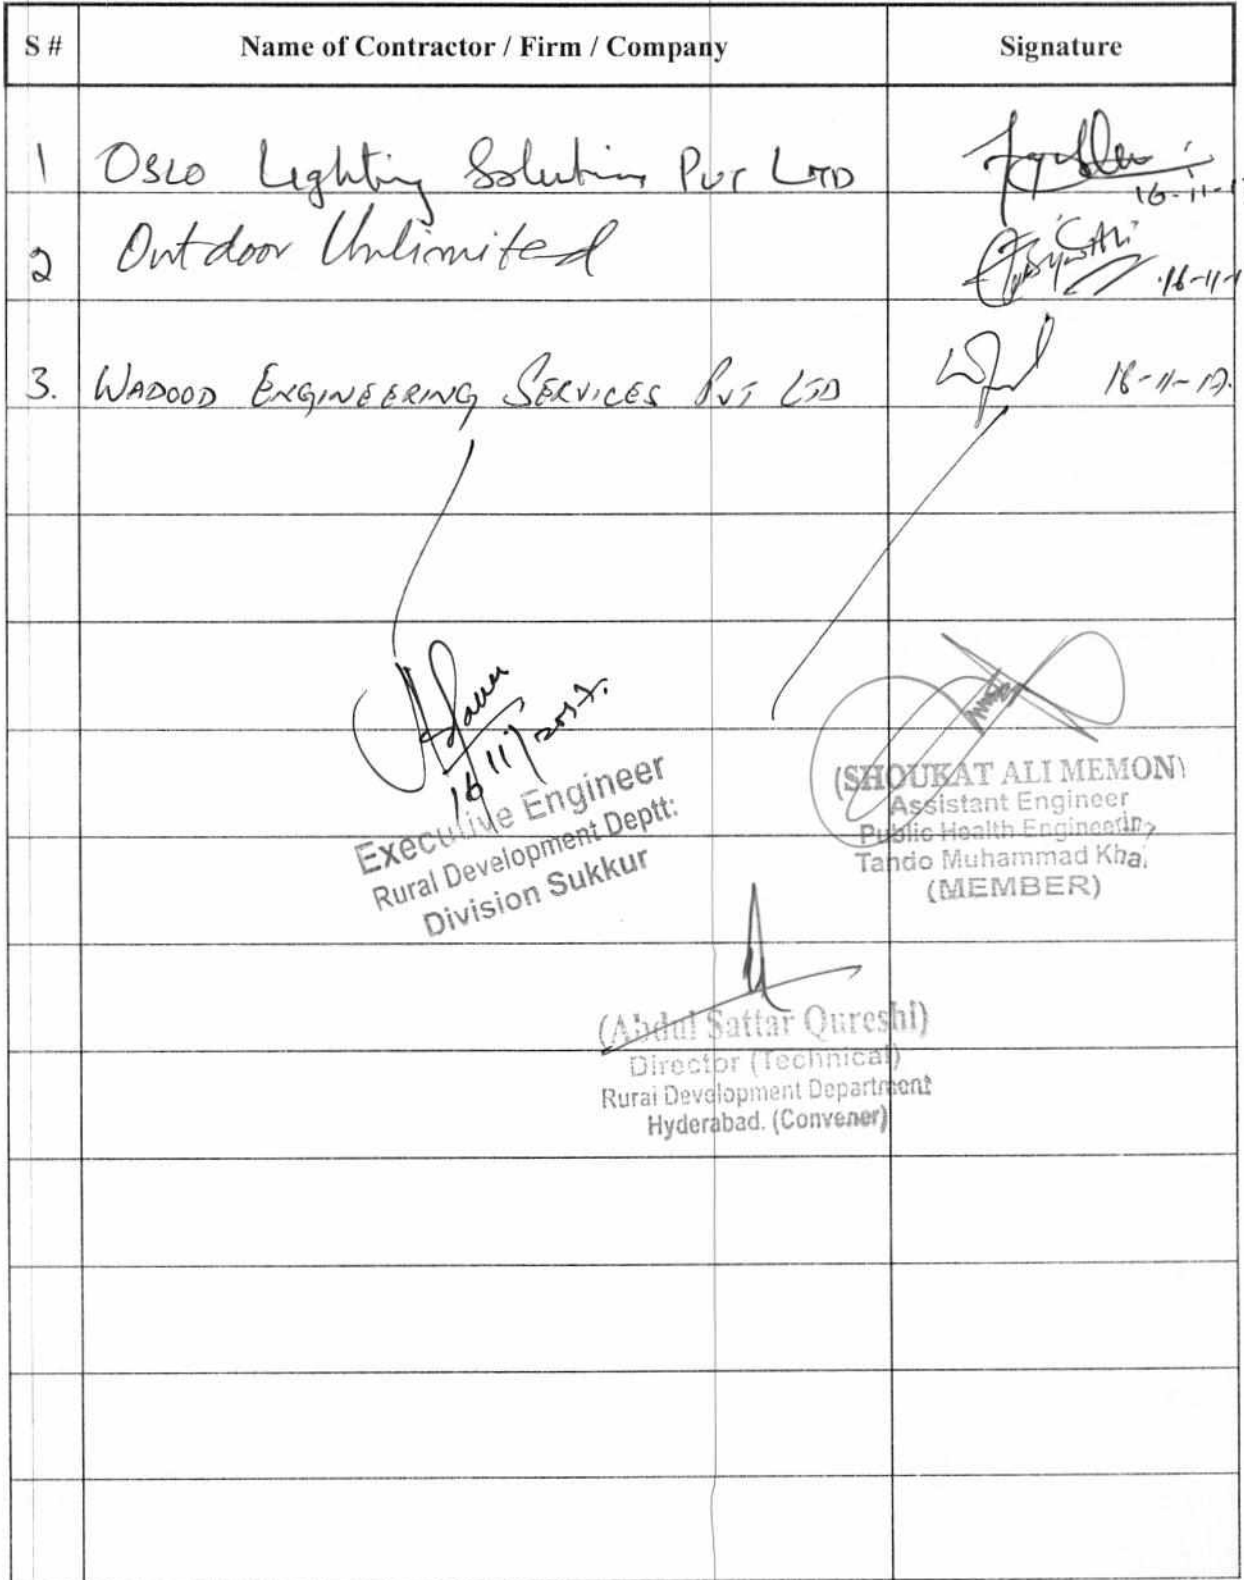 S # Name of Contractor / Firm / Company Signature
1 OSLO Lighting Solutions Pvt LTD
16-11-1
2 Outdoor Unlimited
16-11-1
3. WADOOD ENGINEERING SERVICES PVT LTD 16-11-17.
16/11/2017.
Executive Engineer
Rural Development Deptt:
Division Sukkur
(SHOUKAT ALI MEMON)
Assistant Engineer
Public Health Engineering
Tando Muhammad Kha
(MEMBER)
(Abdul Sattar Qureshi)
Director (Technical)
Rural Development Department
Hyderabad. (Convener)